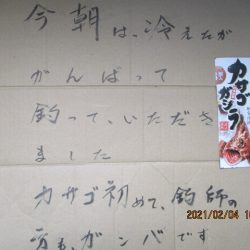 今朝は、冷えたが
がんばって
釣って、いただき
ました
カサゴ初めて、釣師の
方も、ガンバです
カサゴ
ガシラ
2021/02/04